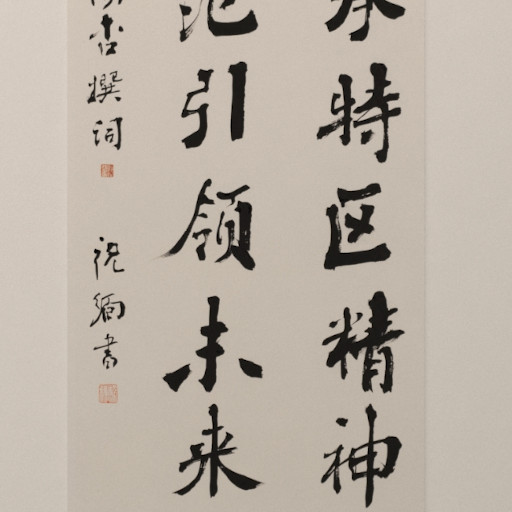 特区精神
引领未来
杏撰词
祝缅书